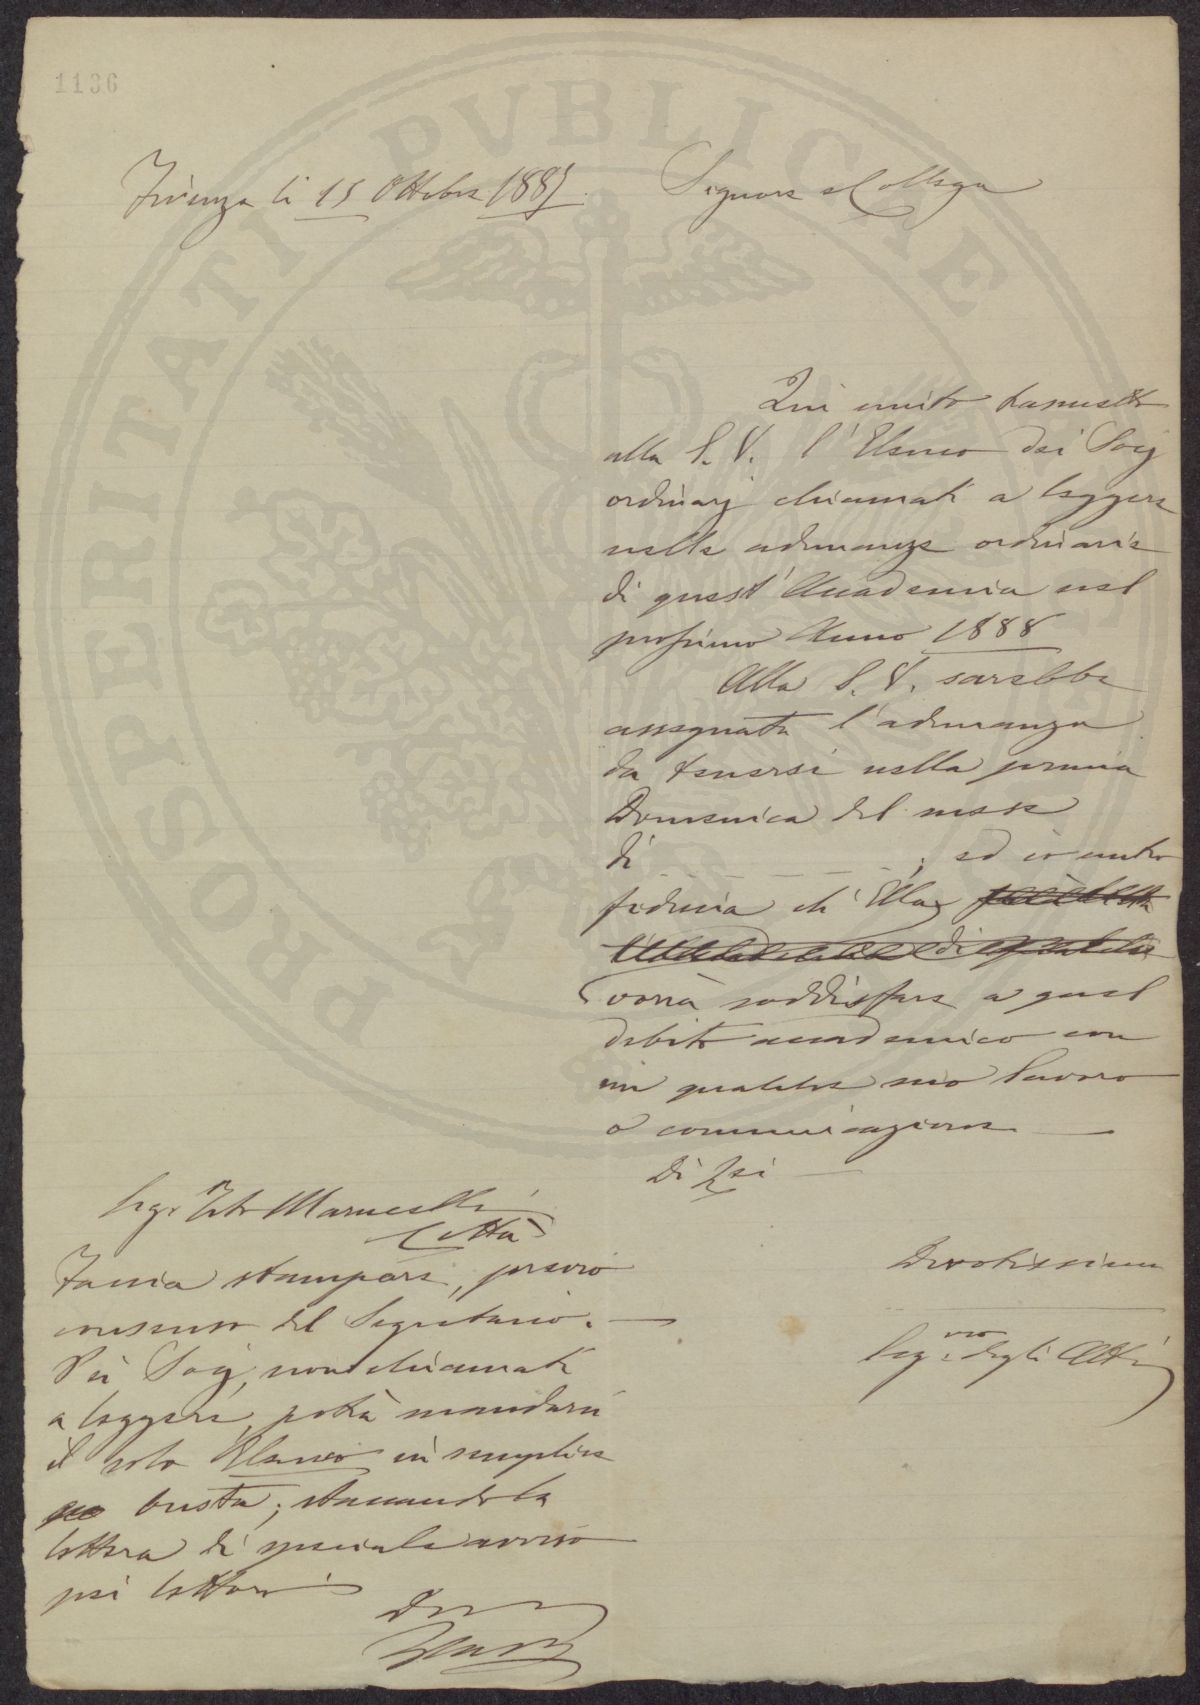 1136
PROSPERITATI PVBLICAE
Firenze li 15 Ottobre 1887
Signore e Collega
Qui unito trasmetto
alla S. V. l'Elenco dei Socj
ordinarj chiamati a leggere
nelle adunanze ordinarie
di quest'Accademia nel
prossimo Anno 1888
Alla S. V. sarebbe
assegnata l'adunanza
da tenersi nella prima
Domenica del mese
di ; ed io nutro
fiducia ch'Ella
di
vorrà soddisfare a quel
debito accademico con
un qualche suo lavoro
o comunicazione
Di Lei
Devotissimo
Segrio degli Atti
Sigr Marucelli
Città
Faccia stampare, previo
consenso del Segretario.
Pei Socj, non chiamati
a leggere, potrà mandarsi
il solo Elenco in semplice
busta; staccando la
lettera di speciale avviso
pei lettori